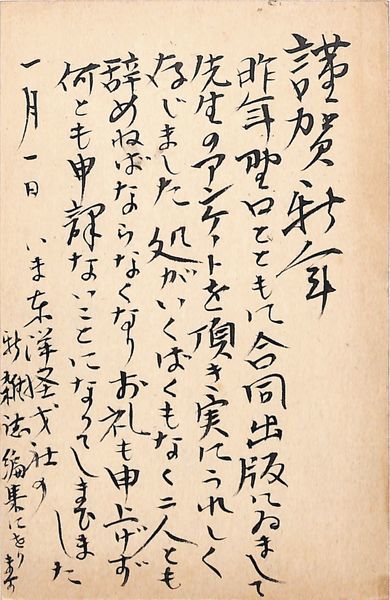 謹賀新年
昨年野口とともに合同出版にゐまして
先生のアンケートを頂き実にうれしく
存じました処がいくばくもなく二人とも
辞めねばならなくなりお礼も申上げず
何とも申訳ないことになってしまひました
一月一日
いま東洋経済社の
新雑誌編集にをります